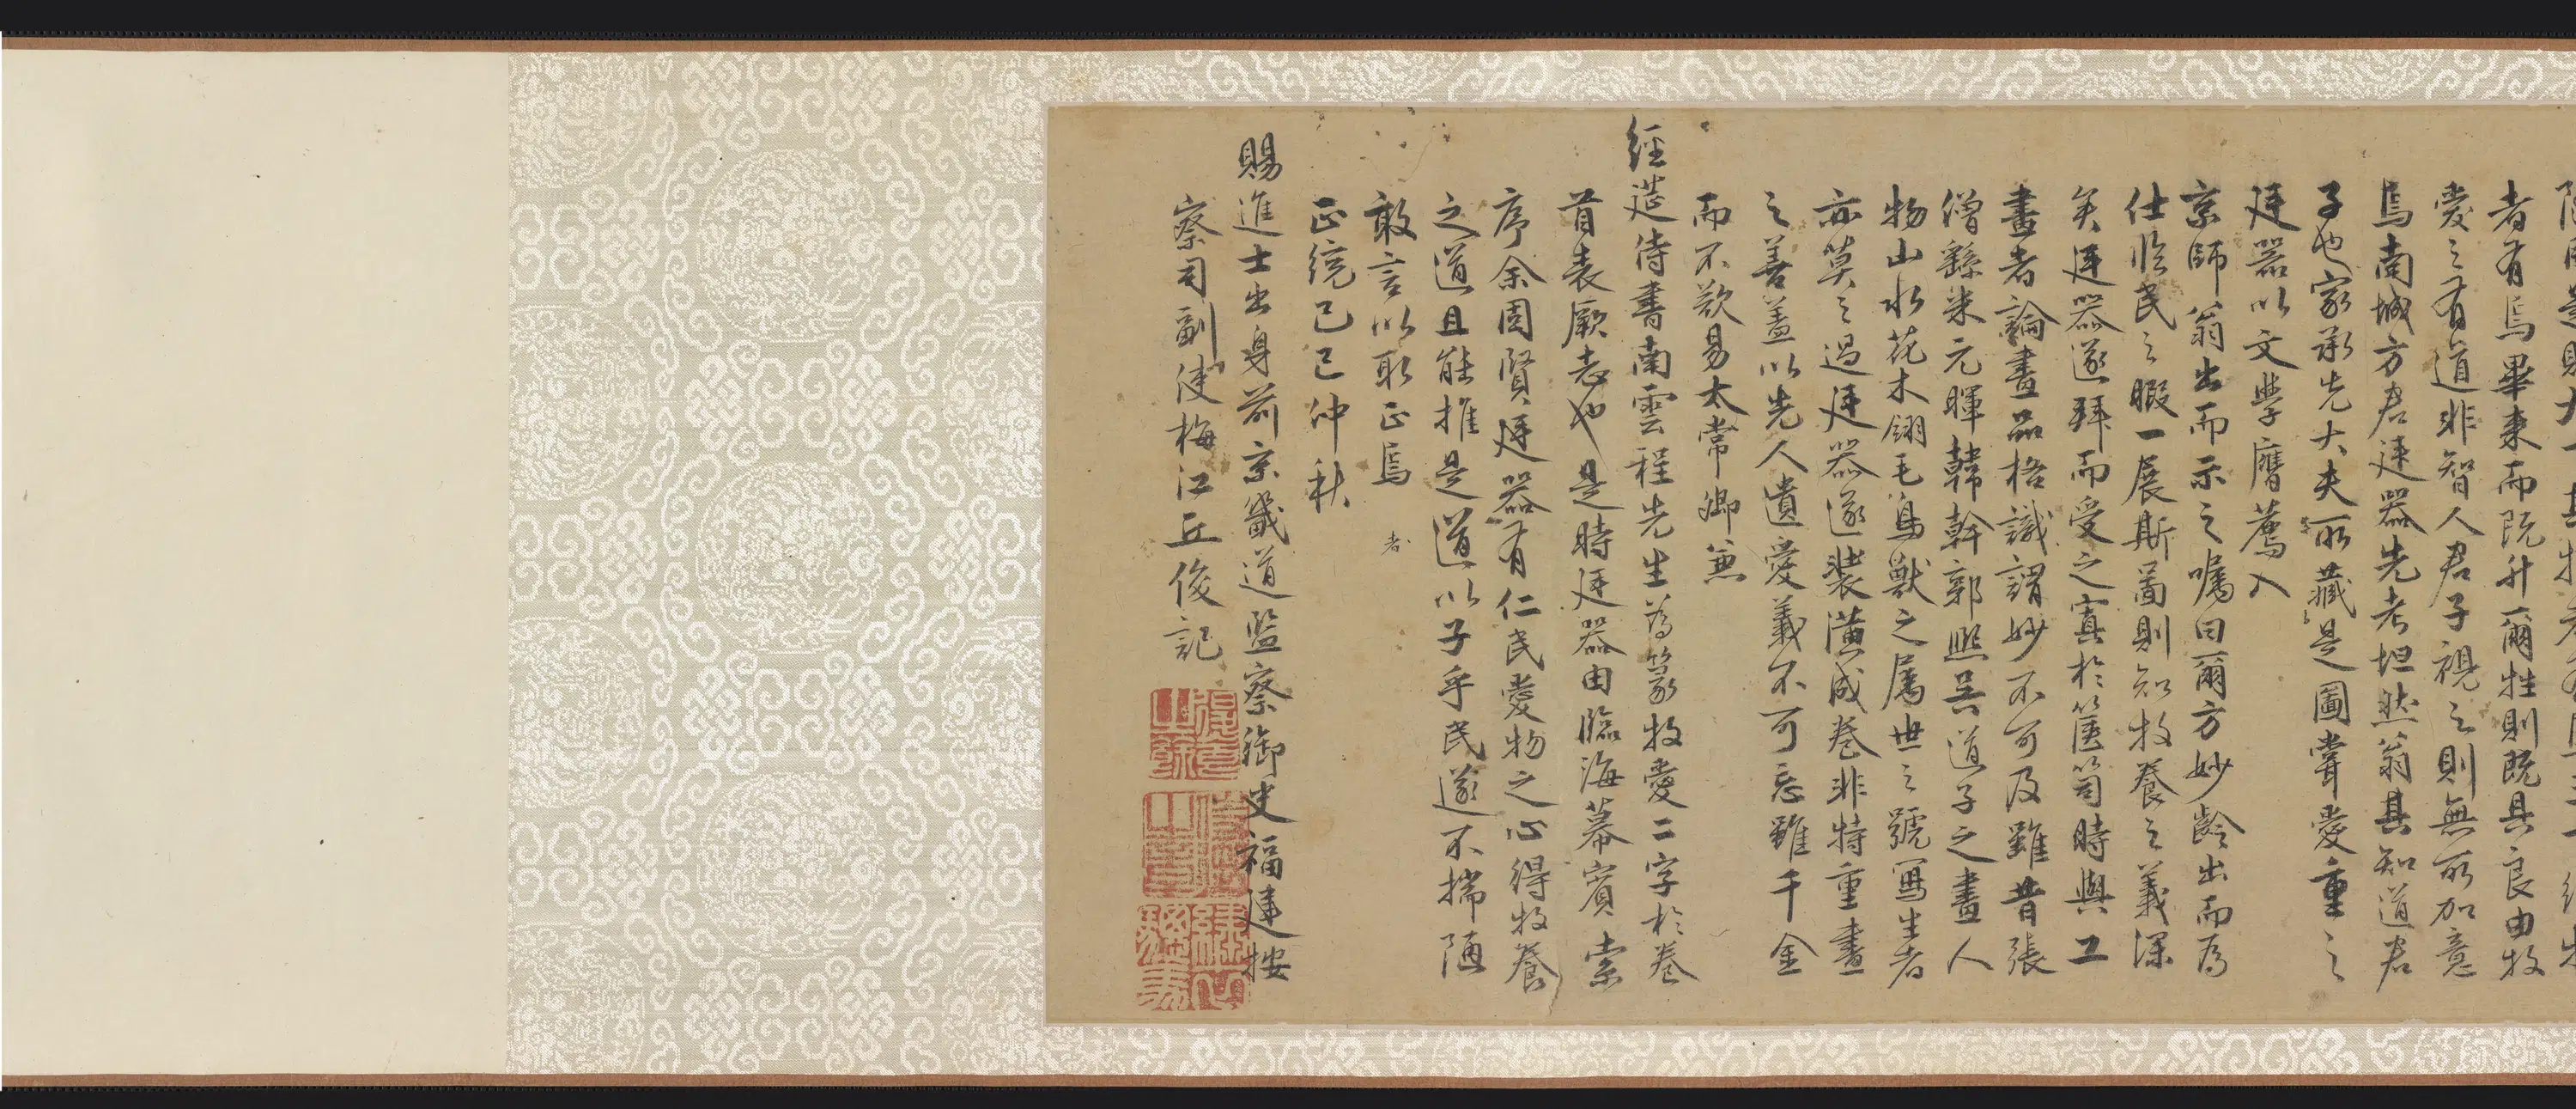 者有焉畢来而既升爾牲則既具良由牧
愛之有道非智人君子視之則無所加意
焉南城方君廷器先考坦然翁其知道君
子也家承先大夫所藏是圖嘗愛重之
廷器以文學膺薦入
京師翁出而示之囑曰爾方妙齡出而為
仕臨民之暇一展斯啚則知牧養之義深
矣廷器遂拜而受之寘於箧笥時與工
畫者論畫品格識謂妙不可及雖昔張
僧繇米元暉韓幹郭熙吳道子之畫人
物山水花木翎毛鳥獸之属世之號冩生者
亦莫之過廷器遂裝潢成卷非特重畫
之善盖以先人遺愛義不可忘雖千金
而不欲易太常卿兼
經筵侍書南雲程先生為篆牧愛二字於卷
首表厥志也是時廷器由臨海幕賓索
序余固賢廷器有仁民愛物之心得牧養
之道且能推是道以子乎民遂不揣陋
敢言以取正焉
者
正統己巳仲秋
賜進士出身前京畿道監察御史福建按
察司副使梅江丘俊記